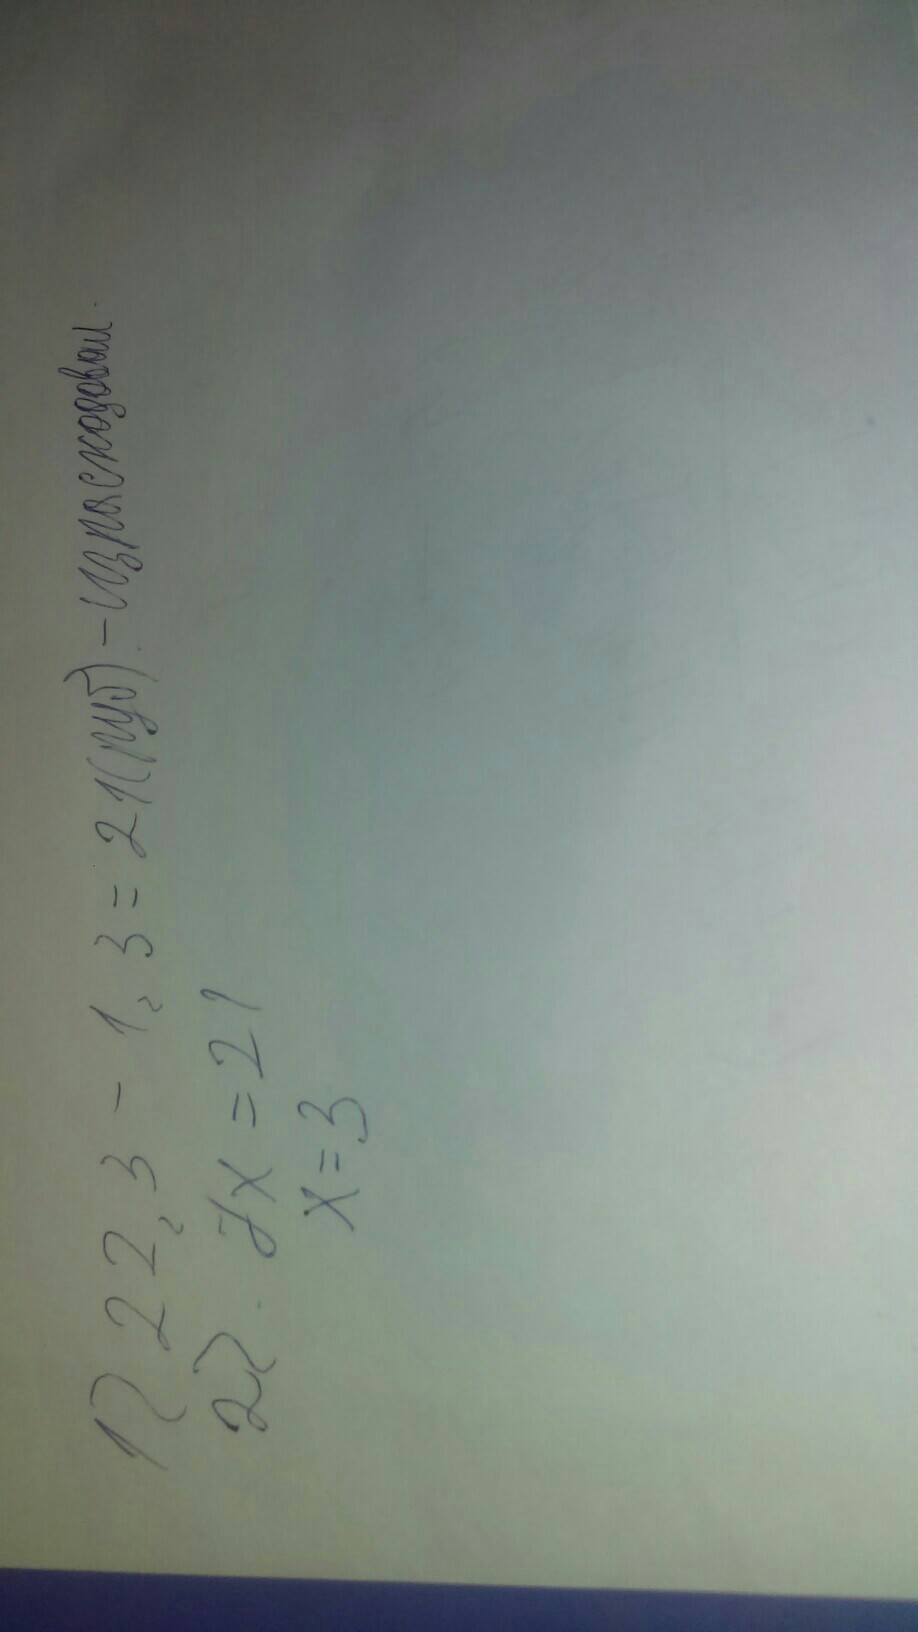 1) 22,3 - 1,3 = 21 (руб). - израсходовал.
2) 7x = 21
x = 3